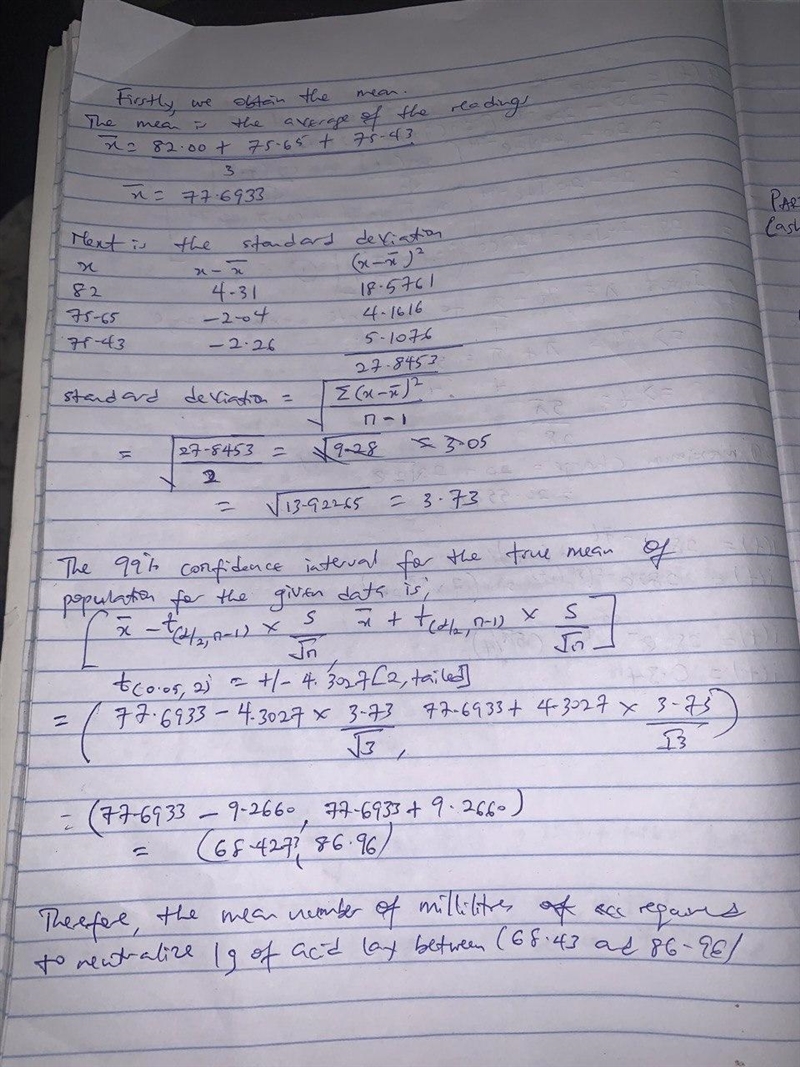 Firstly, we obtain the mean.
The mean is the average of the readings
x̄ = 82.00 + 75.65 + 75.43
3
x̄ = 77.6933
Next is the standard deviation
x x - x̄ (x-x̄)²
82 4.31 18.5761
75.65 -2.04 4.1616
75.43 -2.26 5.1076
27.8453
standard deviation = √(Σ(x-x̄)² / n-1)
= √(27.8453 / 2) = √9.28 = 3.05
= √13.92265 = 3.73
The 99% confidence interval for the true mean of
population for the given data is;
[x̄ - t(α/2, n-1) × s/√n, x̄ + t(α/2, n-1) × s/√n]
t(0.05, 2) = +/- 4.3027 [2, tailed]
= (77.6933 - 4.3027 × 3.73/√3, 77.6933 + 4.3027 × 3.73/√3)
= (77.6933 - 9.2660, 77.6933 + 9.2660)
= (68.4273, 86.96)
Therefore, the mean number of millilitres of required
to neutralize 1g of acid lay between (68.43 and 86.96)
PAR
Cash